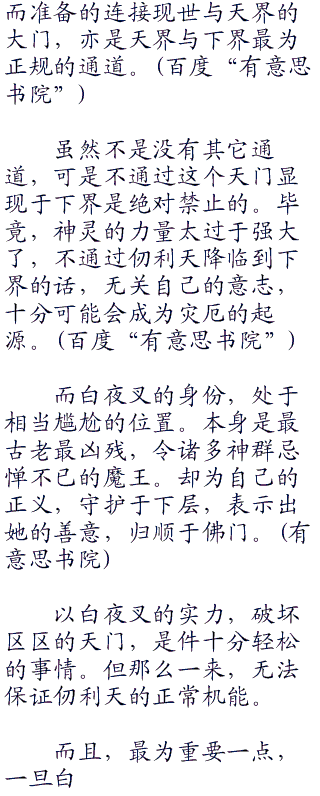 而准备的连接现世与天界的
大门，亦是天界与下界最为
正规的通道。(百度“有意思
书院”)
虽然不是没有其它通
道，可是不通过这个天门显
现于下界是绝对禁止的。毕
竟，神灵的力量太过于强大
了，不通过仞利天降临到下
界的话，无关自己的意志，
十分可能会成为灾厄的起
源。(百度“有意思书院”)
而白夜叉的身份，处于
相当尴尬的位置。本身是最
古老最凶残，令诸多神群忌
惮不已的魔王。却为自己的
正义，守护于下层，表示出
她的善意，归顺于佛门。(有
意思书院)
以白夜叉的实力，破坏
区区的天门，是件十分轻松
的事情。但那么一来，无法
保证仞利天的正常机能。
而且，最为重要一点，
一旦白